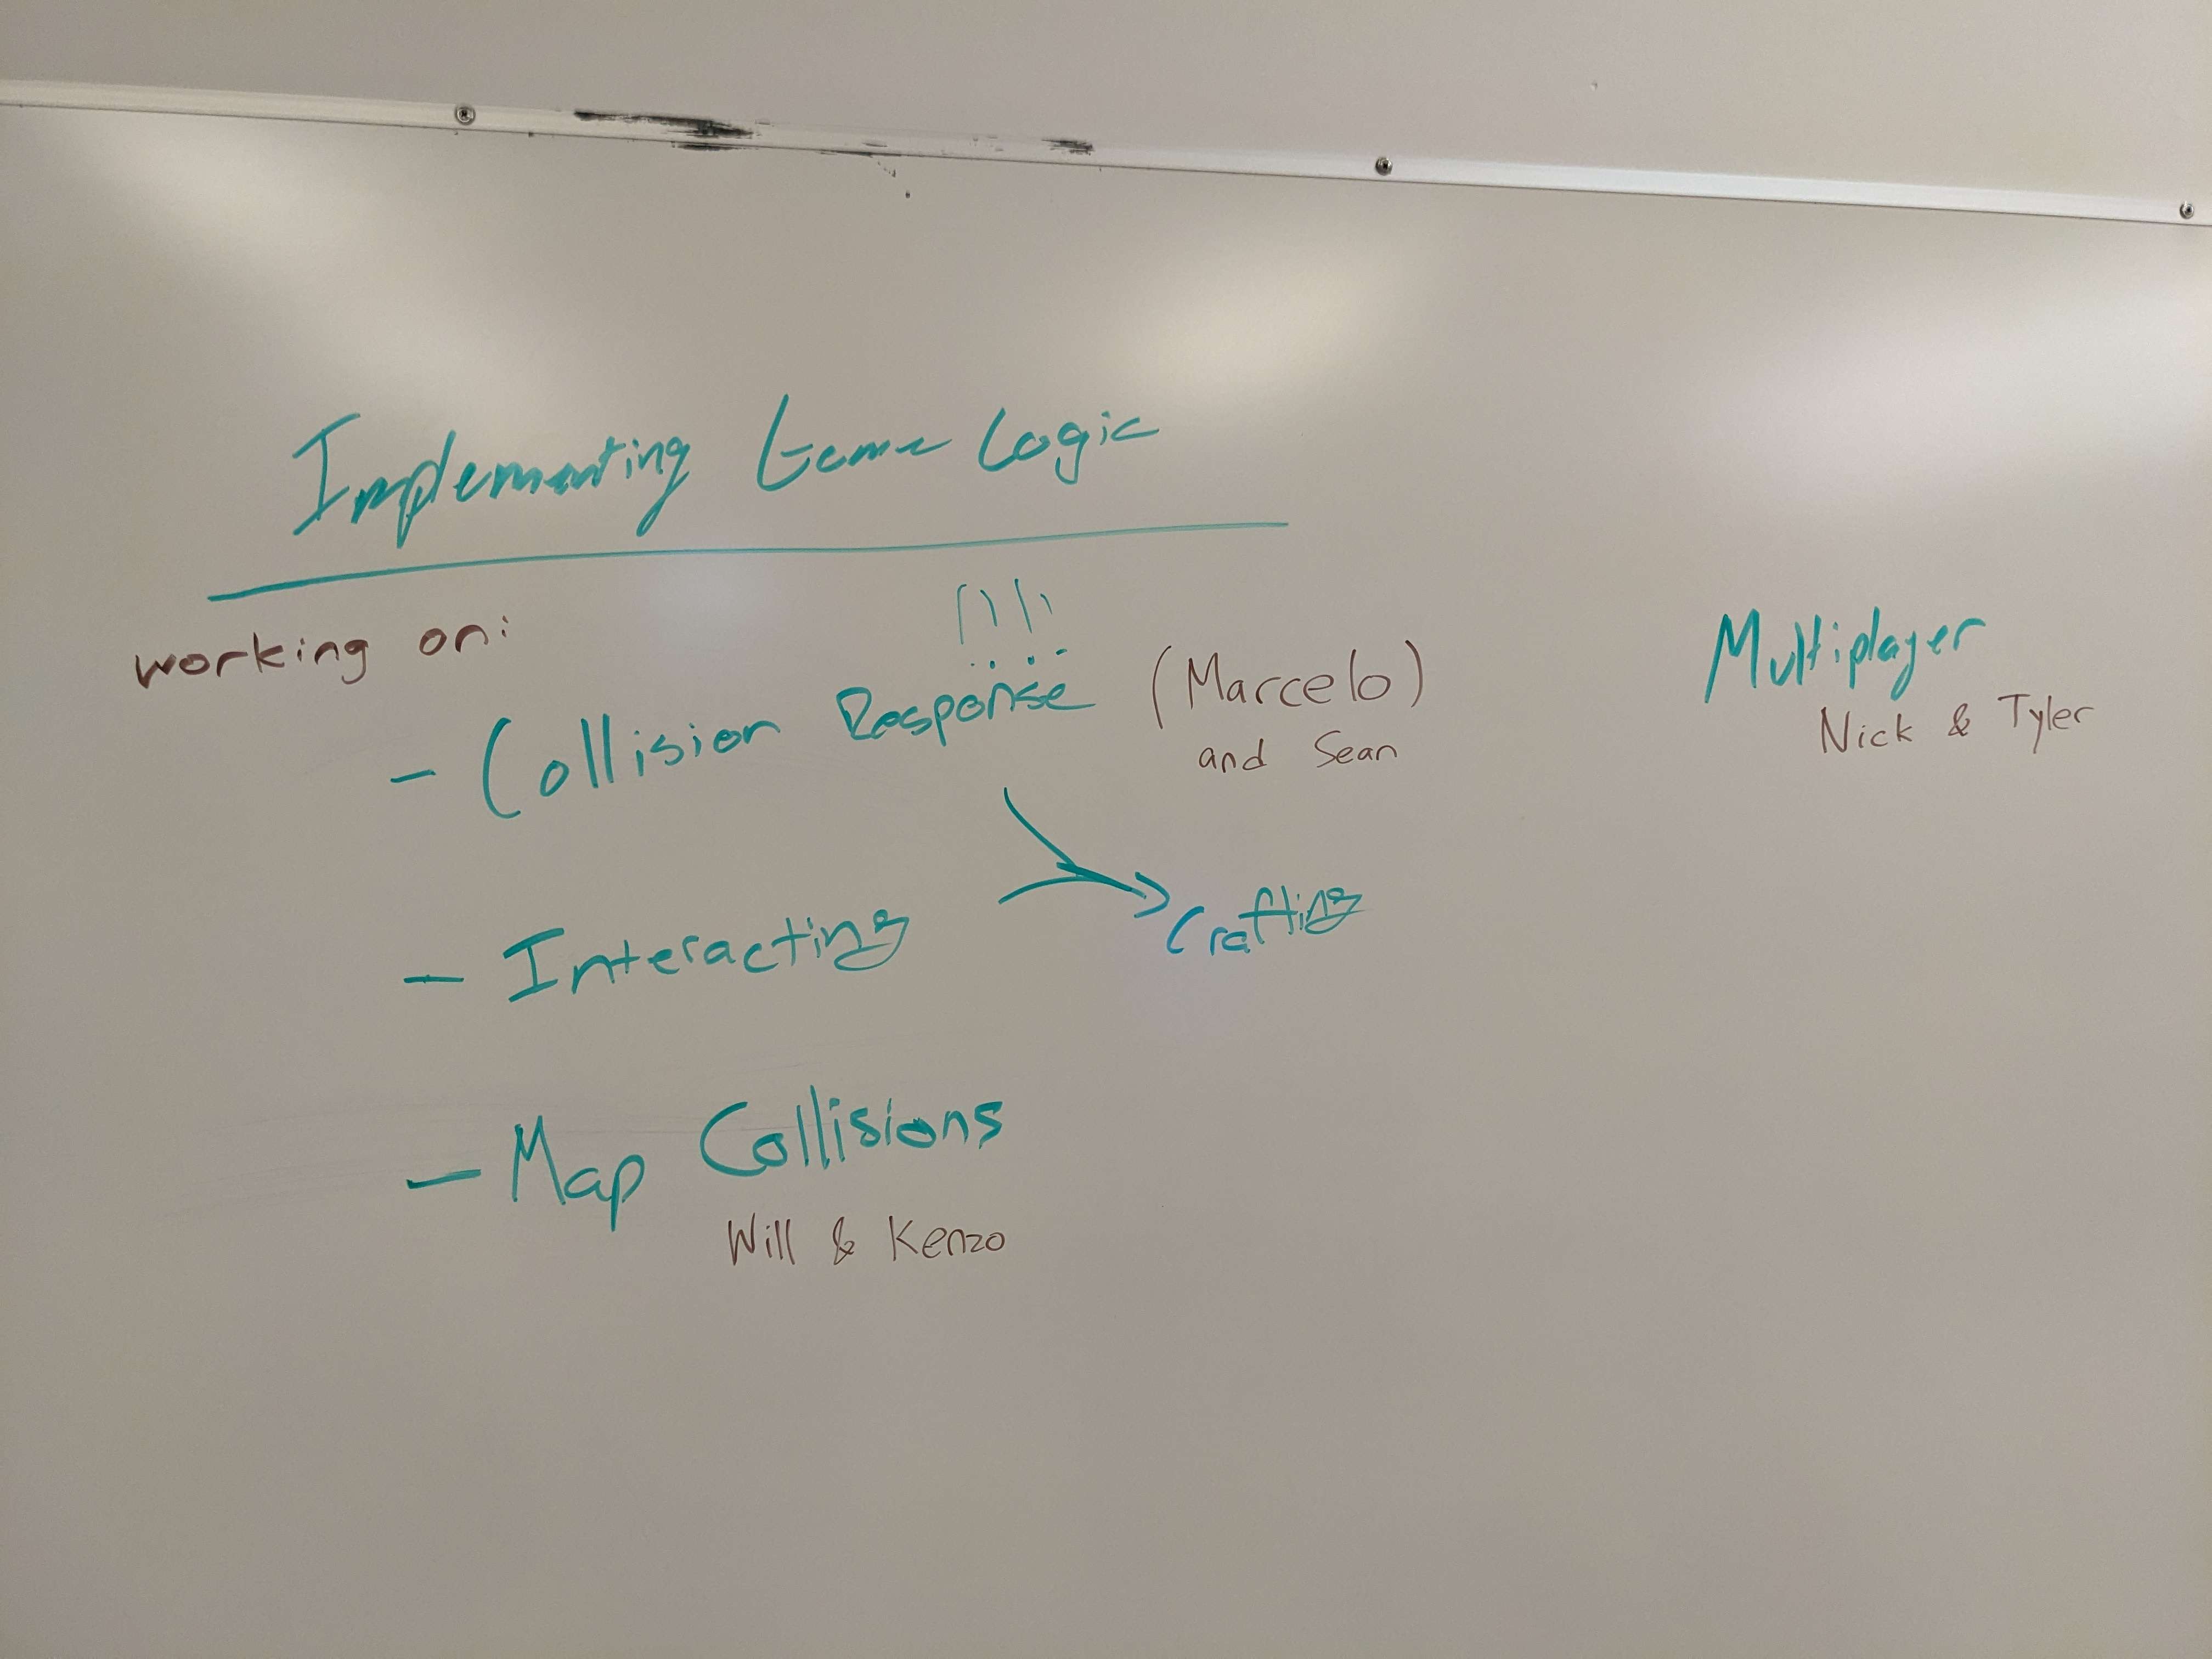 Implementing Game Logic
working on:
!!!!
- Collision Response (Marcelo)
and Sean
- Interacting
Crafting
- Map Collisions
Will & Kenzo
Multiplayer
Nick & Tyler